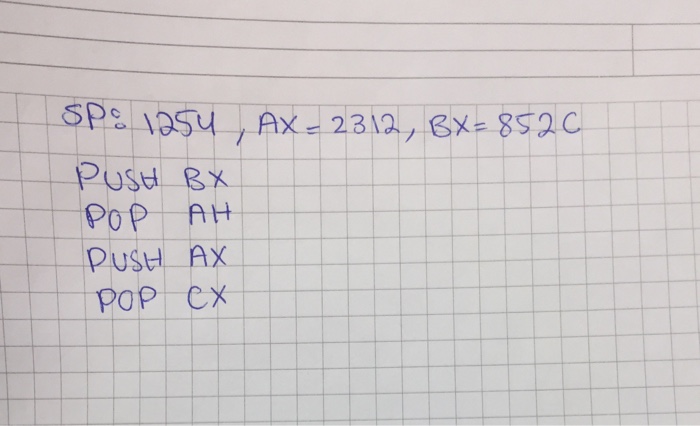 SP: 1254, AX = 2312, BX = 852C
PUSH BX
POP AH
PUSH AX
POP CX